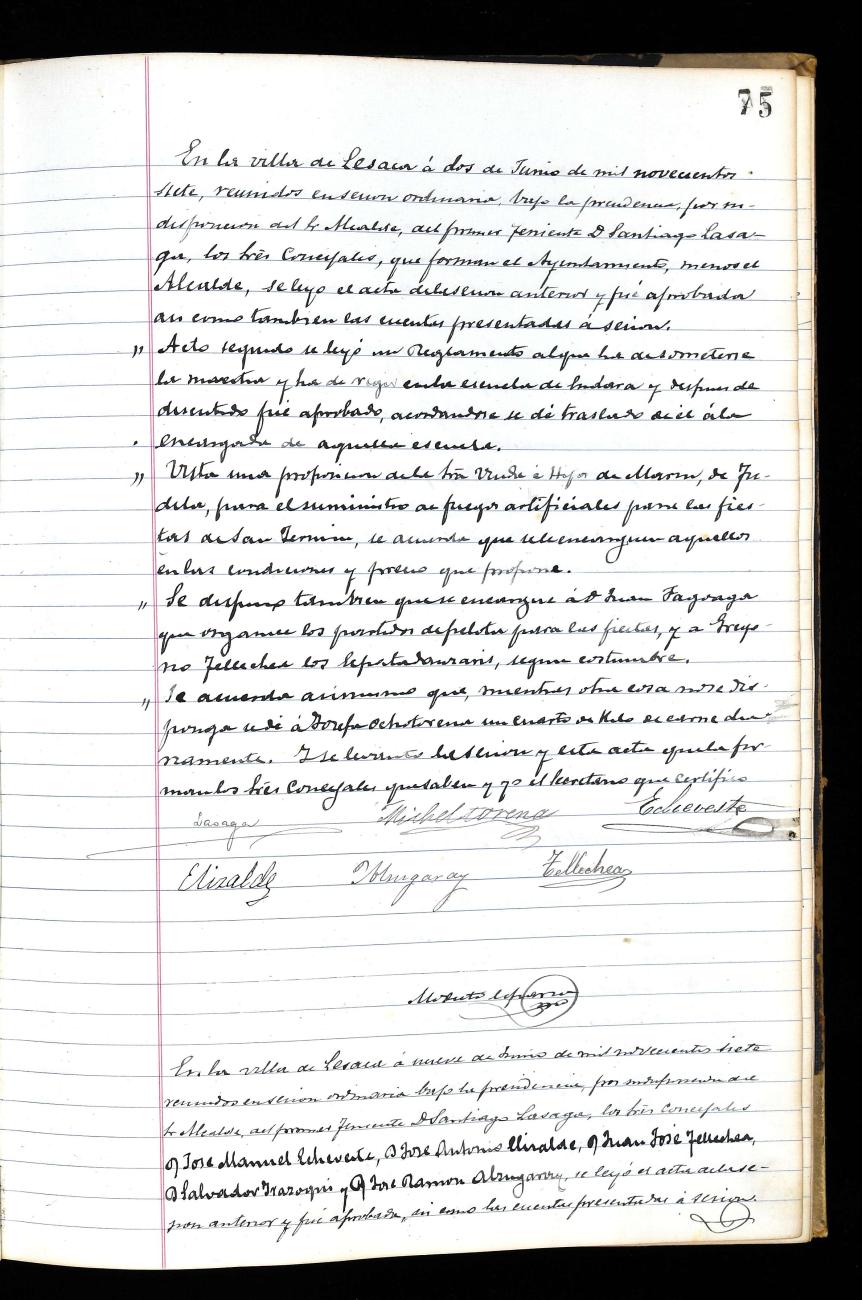 75
En la villa de Lesaca á dos de Junio de mil novecientos
siete, reunidos en sesion ordinaria, bajo la presidencia, por in-
disposicion del Sr Alcalde, del primer Teniente D Santiago Lasa-
ga, los Sres Concejales, que forman el Ayuntamiento, menos el
Alcalde, se leyo el acta de la sesion anterior y fué aprobada
asi como tambien las cuentas presentadas á sesion.
" Acto seguido se leyó un Reglamento al que ha de someterse
la maestra y ha de regir en la escuela de y despues de
discutido fué aprobado, acordandose se dé traslado de él á la
encargada de aquella escuela.
" Vista una proposicion de la Sra Viuda é Hijos de Marin, de Tu-
dela, para el suministro de fuegos artificiales para las fies-
tas de San Fermin, se acuerda que se le encarguen aquellos
en las condiciones y precio que propone.
" Se dispuso tambien que se encargue á D Juan Fagoaga
que organice los partidos de pelota para las fiestas, y a Grego-
rio Tellechea los, segun costumbre.
" Se acuerda asimismo que, mientras otra cosa no se dis-
ponga se dé á Josefa Ochotorena un cuarto de kilo de carne dia-
riamente. Y se levantó la sesion y esta acta que la fir-
man los Sres Concejales que saben y yo el Secretario que certifico
Lasaga Micheltorena Echeveste
Elizalde Aburgaray Tellechea
Modesto
En la villa de Lesaca á nueve de Junio de mil novecientos siete
reunidos en sesion ordinaria bajo la presidencia, por indisposicion del
Sr Alcalde, del primer Teniente D Santiago Lasaga, los Sres Concejales
D José Manuel Echeveste, D José Antonio Elizalde, D Juan José Tellechea,
D Salvador Irazoqui y D José Ramon Aburgaray, se leyó el acta de la se-
sion anterior y fué aprobada, asi como las cuentas presentadas á sesion.